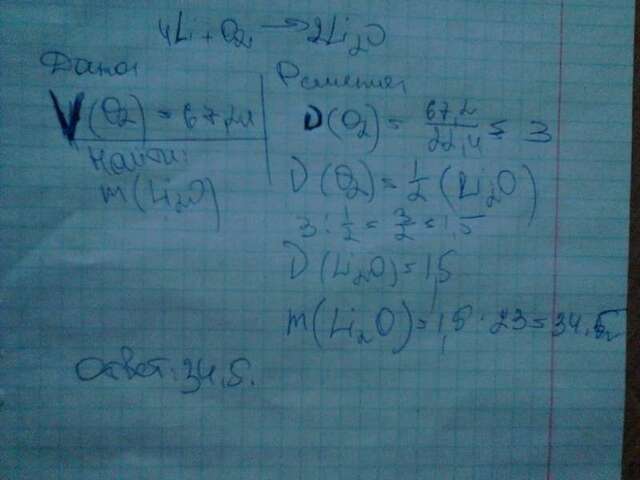 4Li + O2 → 2Li2O
Дано:
V(O2) = 67,2л
Найти:
m(Li2O)
Решение:
D(O2) = 67,2/22,4 = 3
D(O2) = 1/2 (Li2O)
3 : 1/2 = 3/2 = 1,5
D(Li2O) = 1,5
m(Li2O) = 1,5 · 23 = 34,5г
Ответ: 34,5.